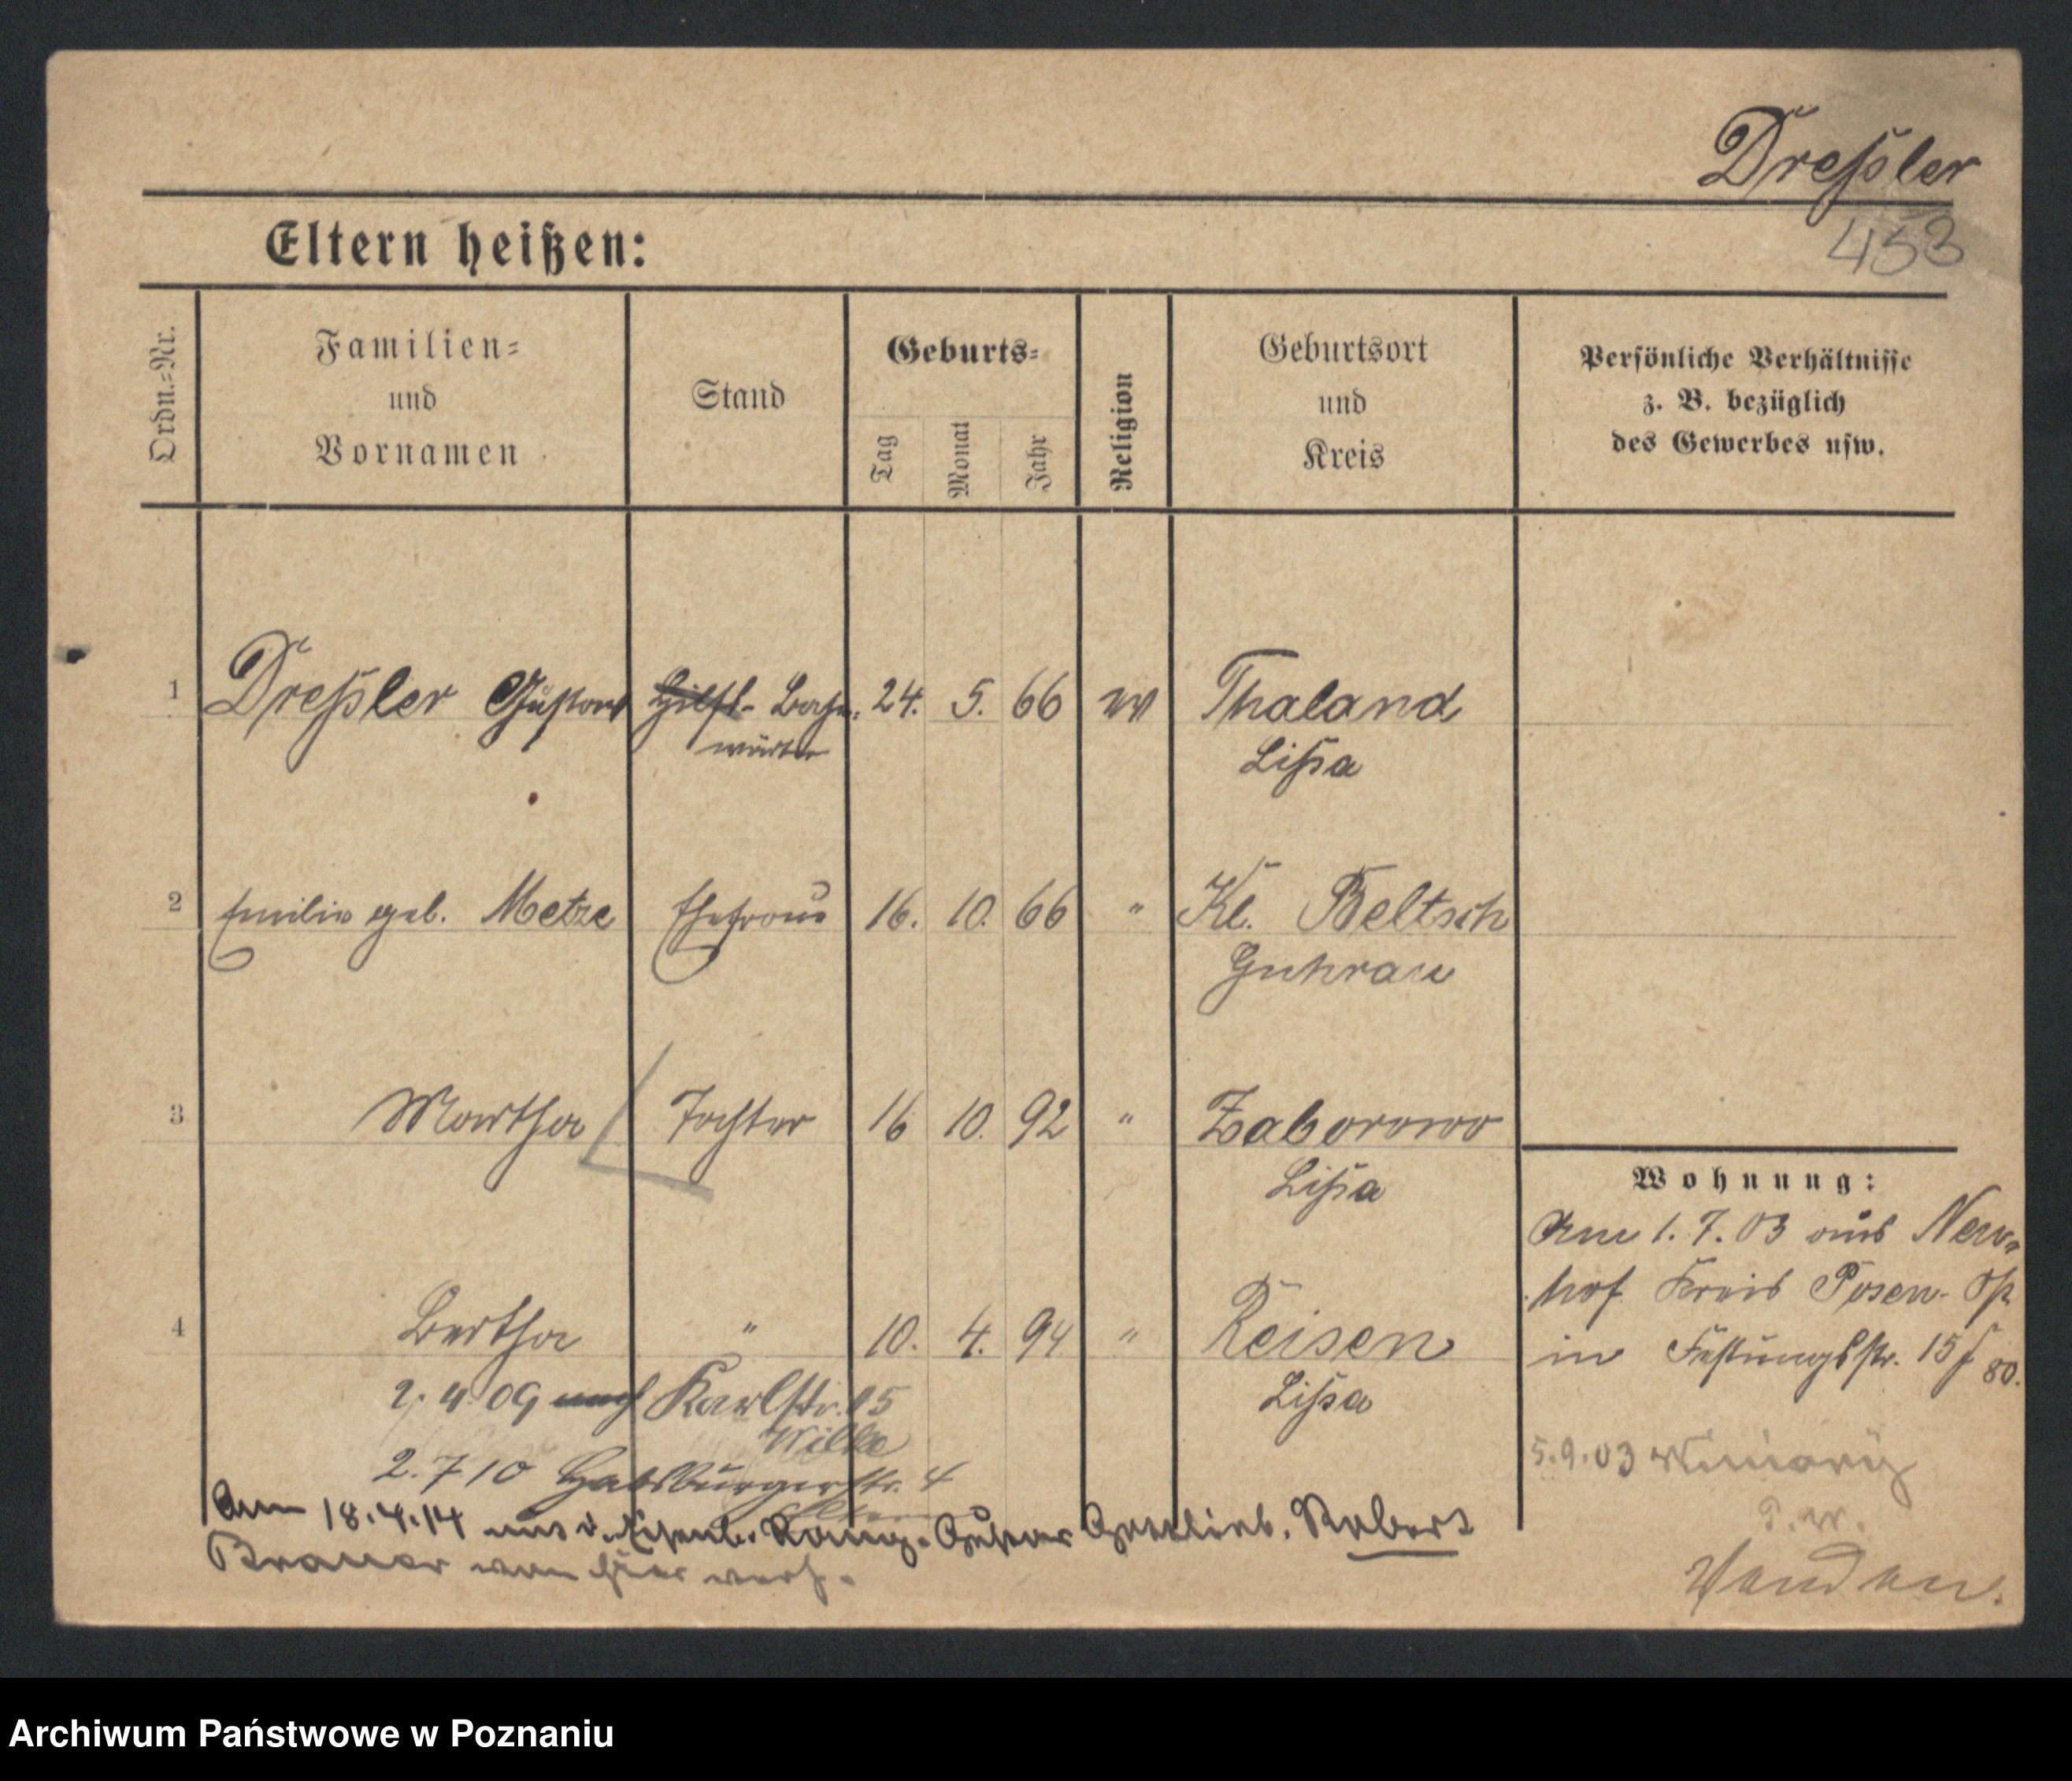 Dreßler
453
Eltern heißen:
Ordn.=Nr.
Familien=
und
Vornamen
Stand
Geburts=
Tag
Monat
Jahr
Religion
Geburtsort
und
Kreis
Persönliche Verhältnisse
z. B. bezüglich
des Gewerbes usw.
1 Dreßler Gustav Hilfs- Bahn- 24. 5. 66 ev Thaland
wärter Lißa
2 Emilie geb. Metze Ehefrau 16. 10. 66 " Kl. Beltsch
Guhrau
3 Martha Tochter 16 10. 92 " Zaborowo
Lißa
4 Bertha " 10. 4. 94 " Reisen
Lißa
Wohnung:
Am 1. 7. 03 aus Neu-
hof Kreis Posen-Ost
in Festungsstr. 15 f 80.
5.9.03 Winiary
Wenden.
2. 4 09 nach Karlstr. 15
Wilke
2. 7 10 Habsburgerstr. 4
Am 18.4.14 mit d. Eisenb. Rang. Gustav Gottlieb. Robert
Brauer von hier verh.
Archiwum Państwowe w Poznaniu